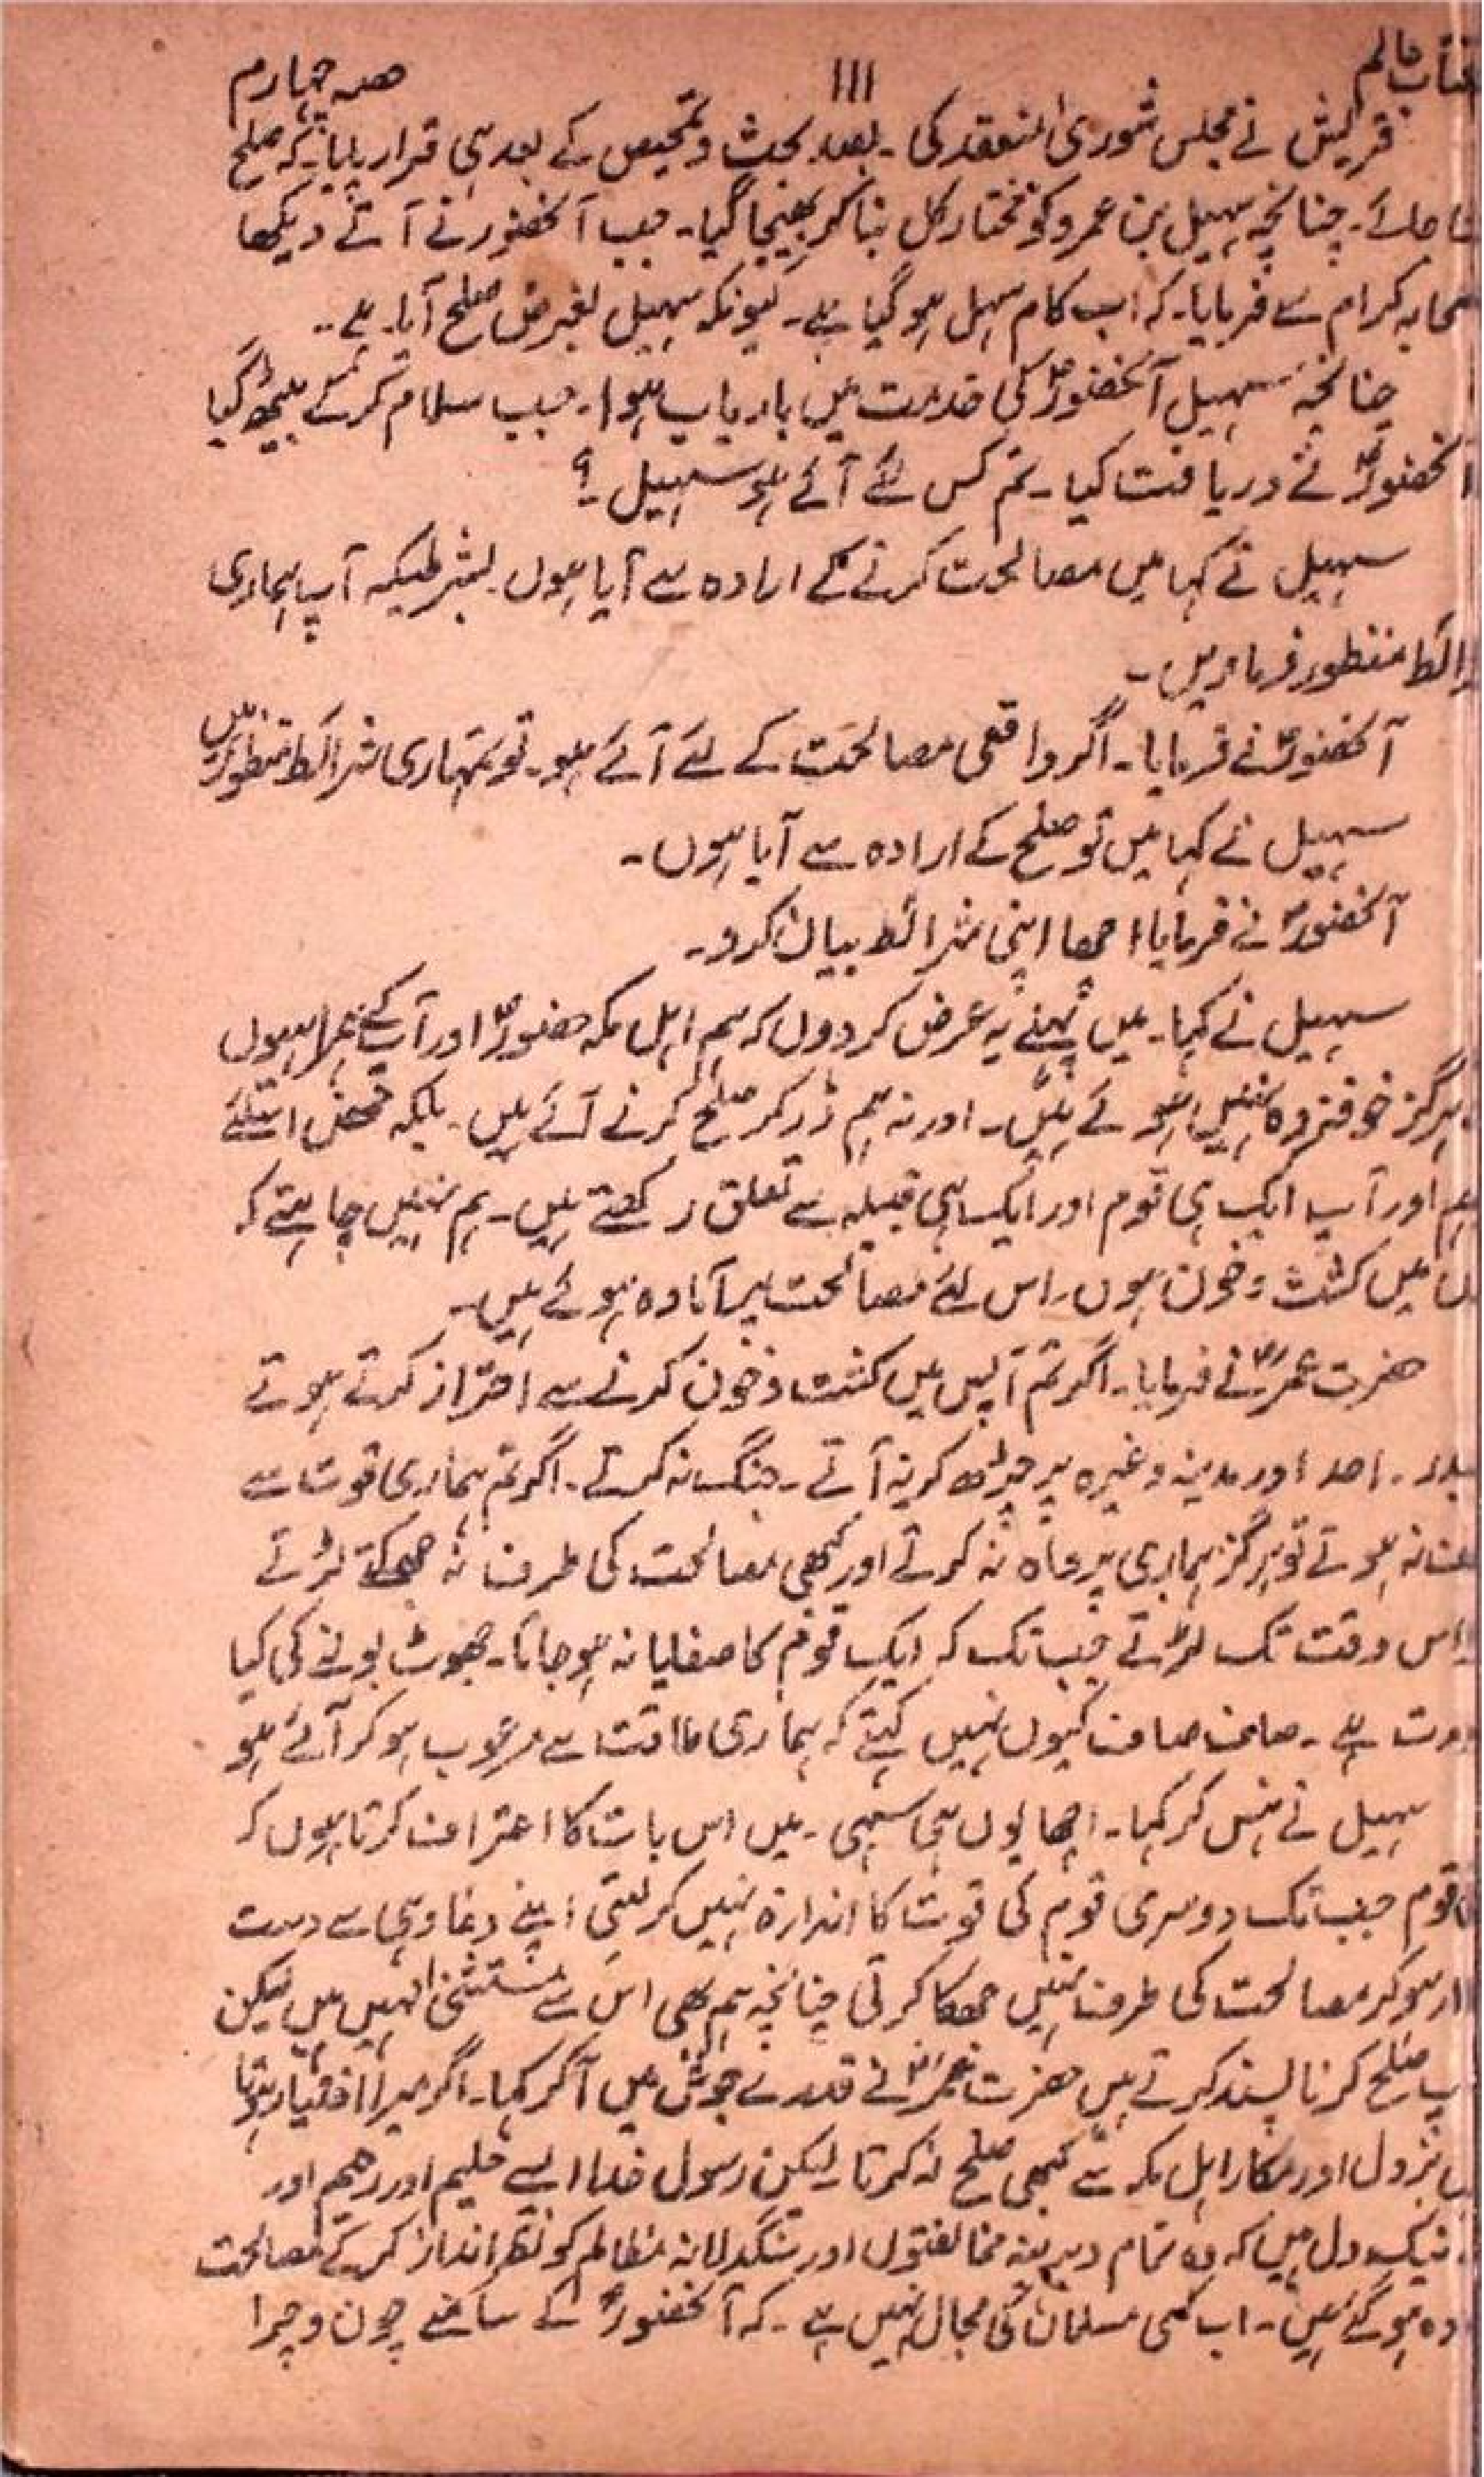 آفتاب عالم ۱۱۱ حصہ چہارم
قریش نے مجلس شوریٰ منعقد کی۔ بعد بحث و تمحیص کے بعد یہی قرار پایا۔ کہ صلح
جائے۔ چنانچہ سہیل بن عمرو کو مختار کل بنا کر بھیجا گیا۔ جب آنحضور نے آتے دیکھا
صحابہ کرام سے فرمایا۔ کہ اب کام سہل ہو گیا ہے۔ کیونکہ سہیل بغرض صلح آیا ہے۔
چنانچہ سہیل آنحضورؐ کی خدمت میں باریاب ہوا۔ جب سلام کر کے بیٹھ گیا
آنحضورؐ نے دریافت کیا۔ تم کس لئے آئے ہو سہیل ۔؟
سہیل نے کہا میں مصالحت کرنے کے ارادہ سے آیا ہوں۔ بشرطیکہ آپ ہماری
رائط منظور فرماویں ۔
آنحضورؐ نے فرمایا۔ اگر واقعی مصالحت کے لئے آئے ہو۔ تو تمہاری شرائط منظور ہیں
سہیل نے کہا میں تو صلح کے ارادہ سے آیا ہوں ۔
آنحضورؐ نے فرمایا اچھا اپنی شرائط بیان کرو۔
سہیل نے کہا۔ میں پہلے یہ عرض کر دوں کہ ہم اہل مکہ حضورؐ اور آپ کے ہمراہیوں
ہرگز خوفزدہ نہیں ہوئے ہیں۔ اور نہ ہم ڈر کر صلح کرنے آئے ہیں۔ بلکہ محض اسلئے
ہم اور آپ ایک ہی قوم اور ایک ہی قبیلہ سے تعلق رکھتے ہیں۔ ہم نہیں چاہتے کہ
میں کشت و خون ہوں۔ اس لئے مصالحت پر آمادہ ہوئے ہیں۔
حضرت عمرؓ نے فرمایا۔ اگر تم آپس میں کشت و خون کرنے سے احتراز کرتے ہوتے
بدر۔ احد اور مدینہ وغیرہ پر چڑھ کر نہ آتے۔ جنگ نہ کرتے۔ اگر تم ہماری قوت سے
نہ ہوتے تو ہرگز ہماری پرواہ نہ کرتے اور کبھی مصالحت کی طرف نہ جھکتے لڑتے
اس وقت تک لڑتے جب تک کہ ایک قوم کا صفایا نہ ہو جاتا۔ جھوٹ بولنے کی کیا
رت ہے ۔ صاف صاف کیوں نہیں کہتے کہ ہماری طاقت سے مرعوب ہو کر آئے ہو
سہیل نے ہنس کر کہا۔ اچھا یوں ہی سہی۔ میں اس بات کا اعتراف کرتا ہوں کہ
قوم جب تک دوسری قوم کی قوت کا اندازہ نہیں کر لیتی اپنے دعاوی سے دست
ار ہو کر مصالحت کی طرف نہیں جھکا کرتی چنانچہ ہم بھی اس سے مستثنیٰ نہیں ہیں لیکن
صلح کرنا پسند کرتے ہیں حضرت عمرؓ نے قدرے جوش میں آ کر کہا۔ اگر میرا اختیار ہوتا
بزدل اور مکار اہل مکہ سے کبھی صلح نہ کرتا۔ لیکن رسول خدا ایسے حلیم اور رحیم اور
نیک دل ہیں کہ وہ تمام دیرینہ مخالفتوں اور سنگدلانہ مظالم کو نظر انداز کر کے مصالحت
دہ ہو گئے ہیں۔ اب کسی مسلمان کی مجال نہیں ہے ۔ کہ آنحضورؐ کے سامنے چون و چرا